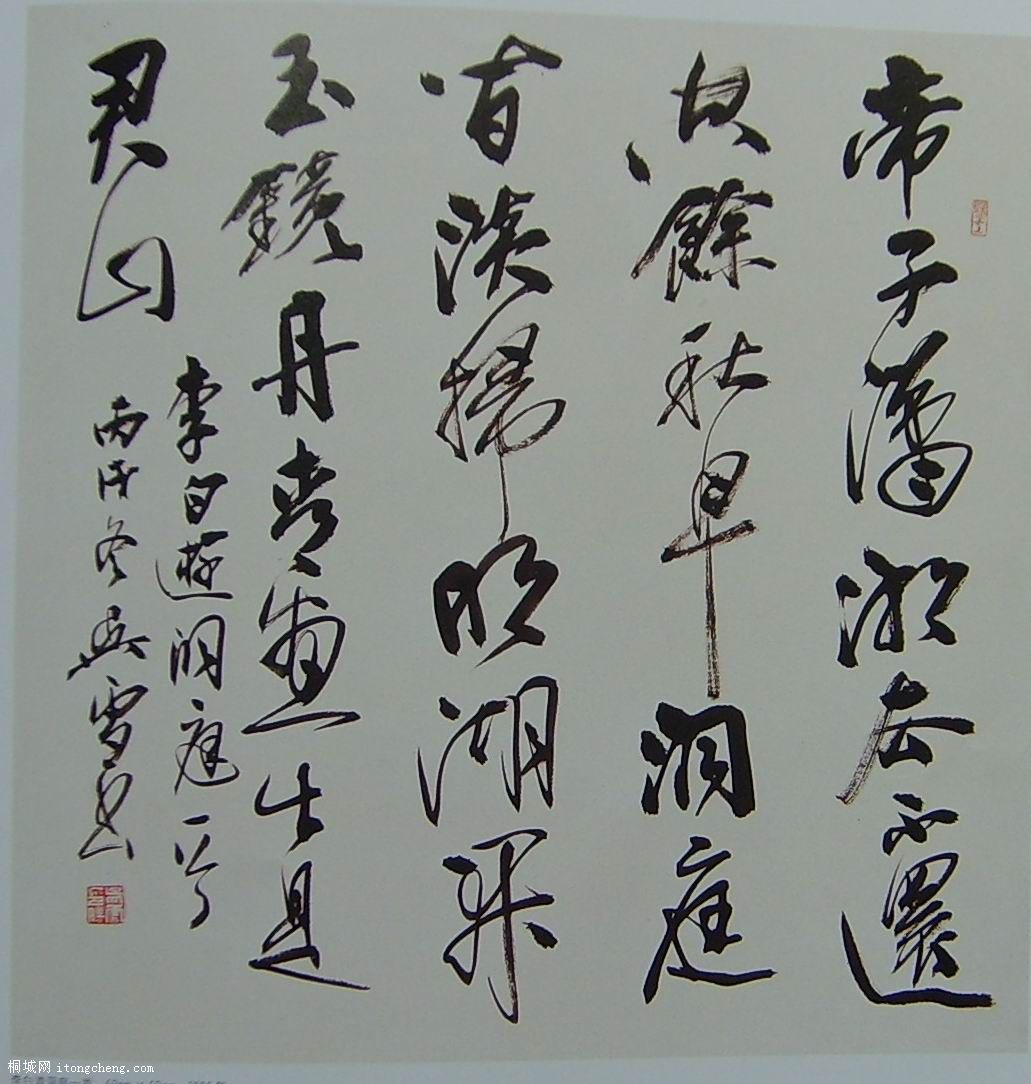 帝子瀟湘去不還
空餘秋草洞庭
間淡掃明湖開
玉鏡丹青畫出是
君山
李白遊洞庭一首
丙戌冬吳雪書
桐城网 itongcheng.com